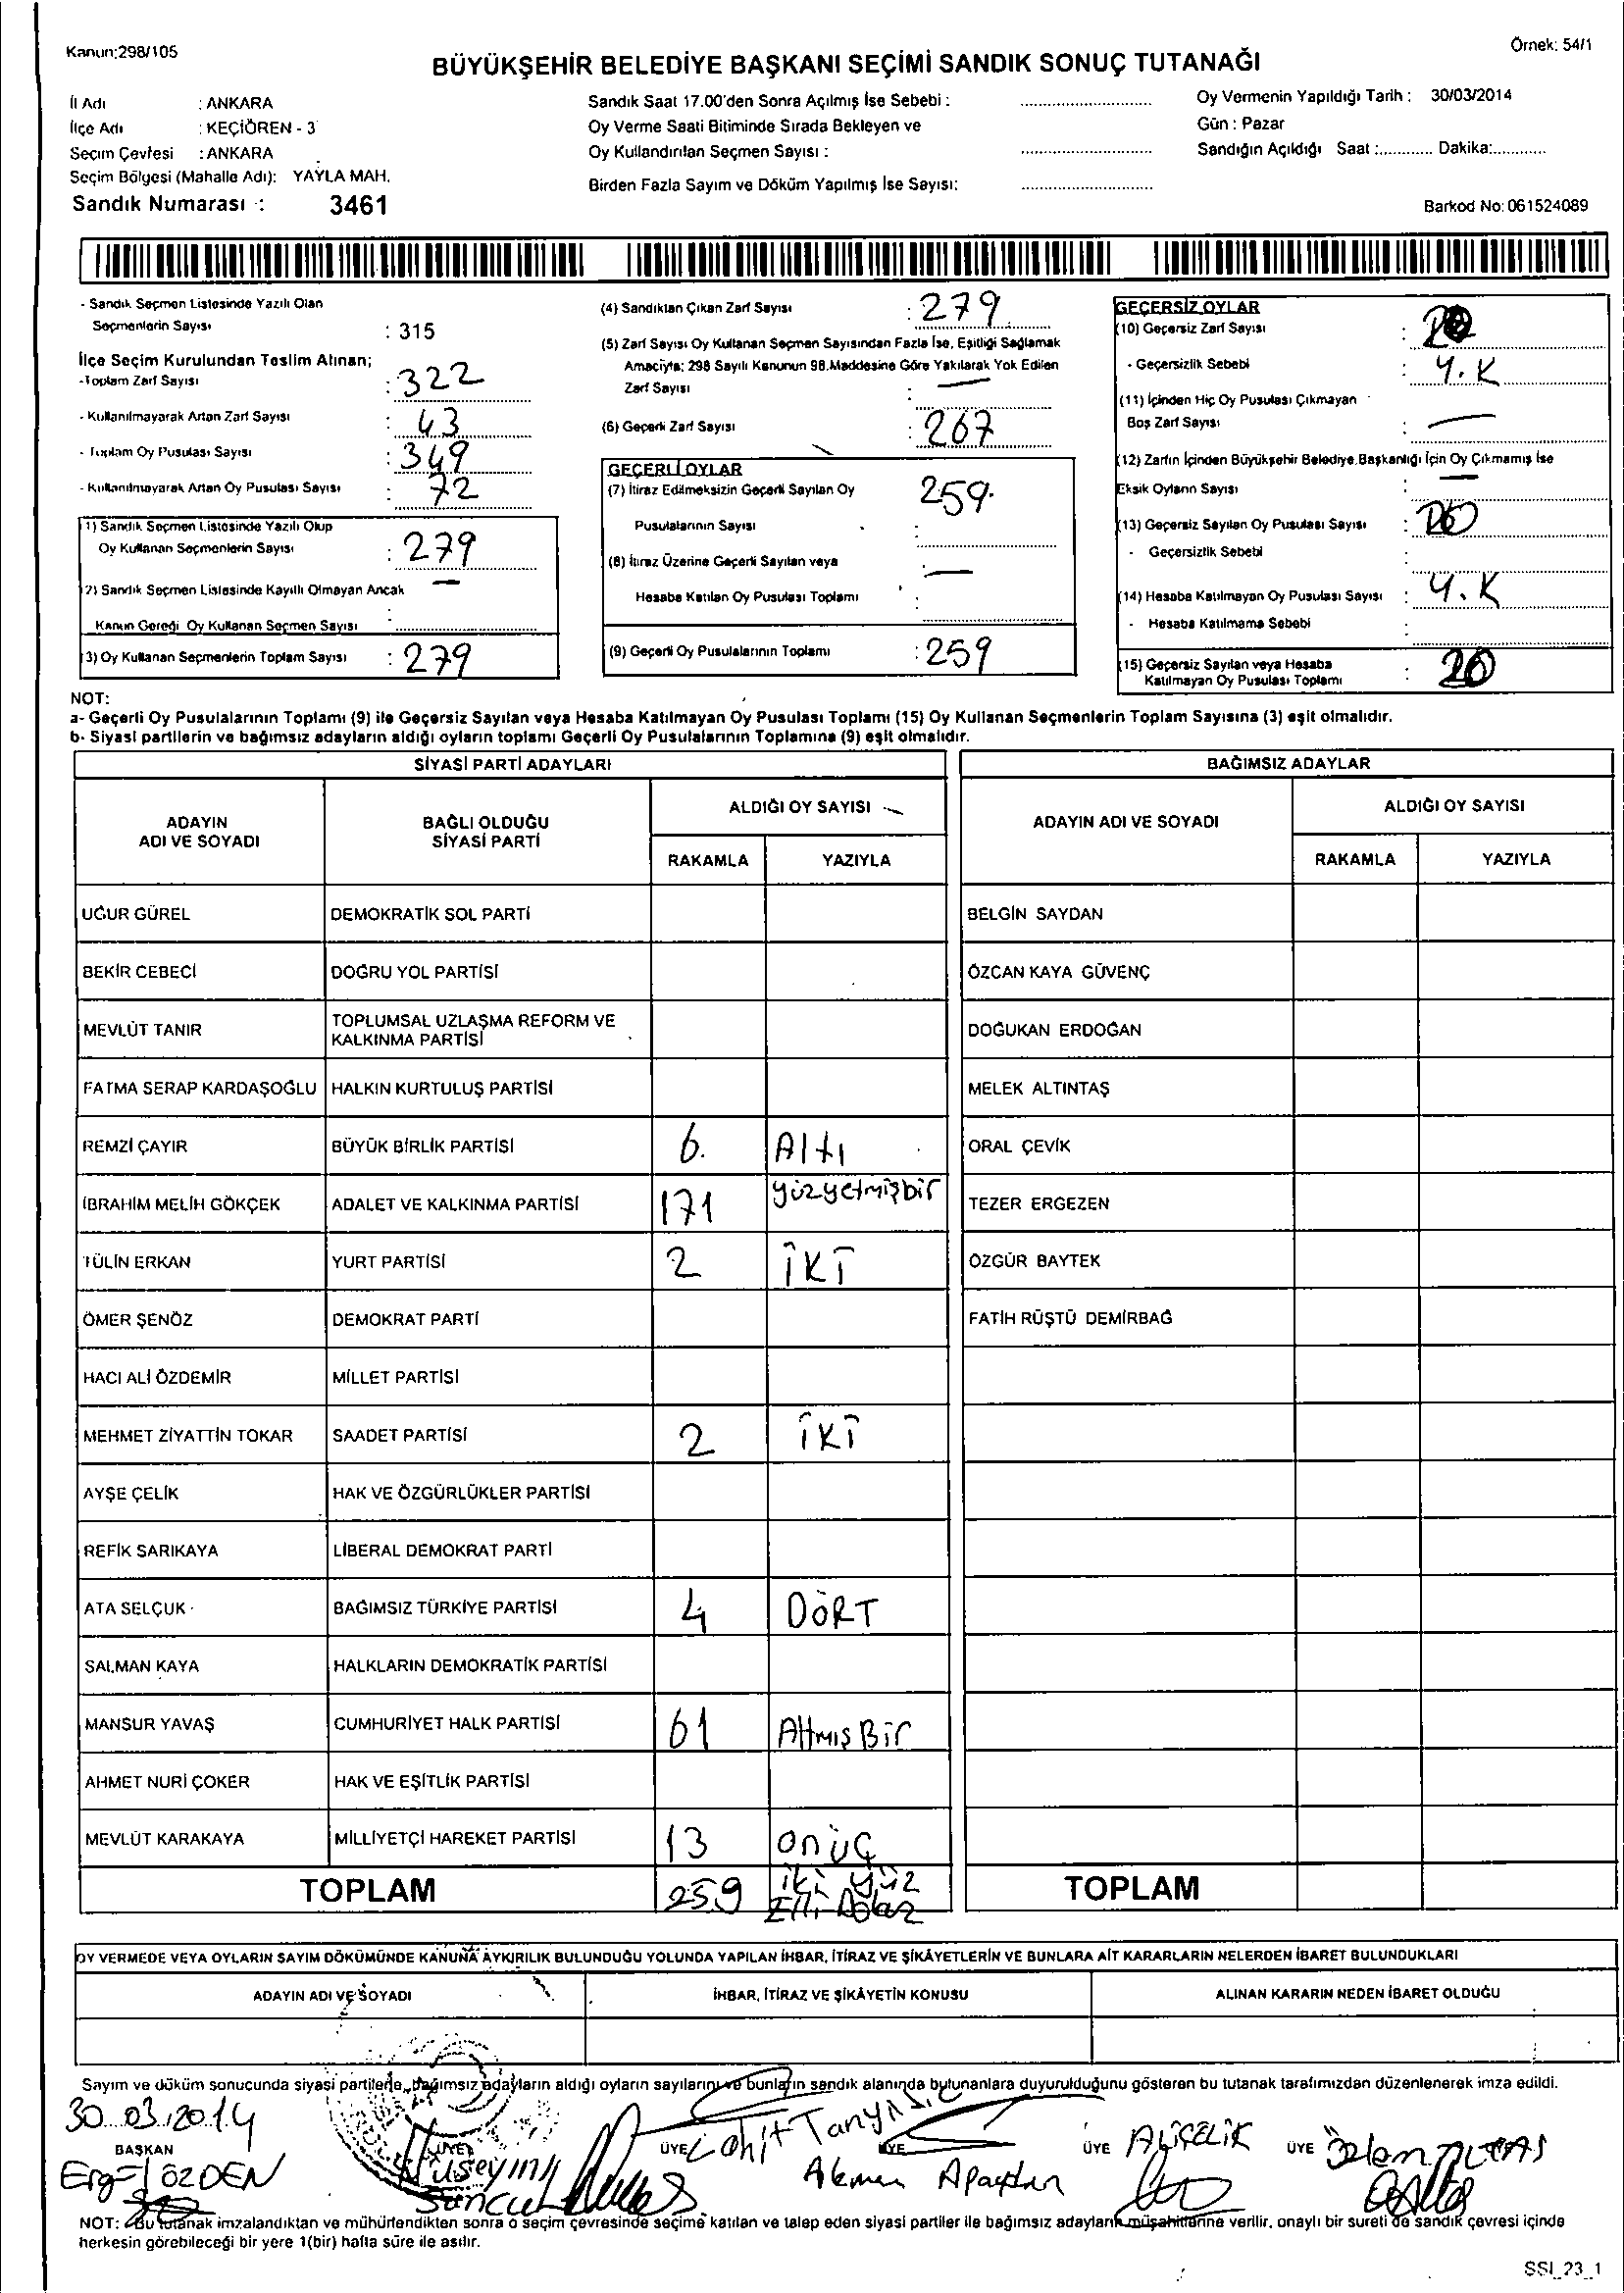 Kanun:298/105
Örnek: 54/1
BÜYÜKŞEHİR BELEDİYE BAŞKANI SEÇİMİ SANDIK SONUÇ TUTANAĞI
İl Adı : ANKARA
İlçe Adı : KEÇİÖREN - 3
Seçim Çevresi : ANKARA
Seçim Bölgesi (Mahalle Adı): YAYLA MAH.
Sandık Numarası : 3461
Sandık Saat 17.00'den Sonra Açılmış İse Sebebi :
Oy Verme Saati Bitiminde Sırada Bekleyen ve
Oy Kullandırılan Seçmen Sayısı :
Birden Fazla Sayım ve Döküm Yapılmış İse Sayısı:
Oy Vermenin Yapıldığı Tarih : 30/03/2014
Gün : Pazar
Sandığın Açıldığı Saat :............ Dakika:............
Barkod No: 061524089
- Sandık Seçmen Listesinde Yazılı Olan
Seçmenlerin Sayısı : 315
İlçe Seçim Kurulundan Teslim Alınan;
-Toplam Zarf Sayısı : 322
- Kullanılmayarak Artan Zarf Sayısı : 43
- Toplam Oy Pusulası Sayısı : 349
- Kullanılmayarak Artan Oy Pusulası Sayısı : 72
1) Sandık Seçmen Listesinde Yazılı Olup
Oy Kullanan Seçmenlerin Sayısı : 279
2) Sandık Seçmen Listesinde Kayıtlı Olmayan Ancak —
Kanun Gereği Oy Kullanan Seçmen Sayısı :
3) Oy Kullanan Seçmenlerin Toplam Sayısı : 279
(4) Sandıktan Çıkan Zarf Sayısı : 279
(5) Zarf Sayısı Oy Kullanan Seçmen Sayısından Fazla İse, Eşitliği Sağlamak
Amacıyla; 298 Sayılı Kanunun 98.Maddesine Göre Yakılarak Yok Edilen
Zarf Sayısı : —
(6) Geçerli Zarf Sayısı : 267
GEÇERLİ OYLAR
(7) İtiraz Edilmeksizin Geçerli Sayılan Oy 259
Pusulalarının Sayısı :
(8) İtiraz Üzerine Geçerli Sayılan veya —
Hesaba Katılan Oy Pusulası Toplamı :
(9) Geçerli Oy Pusulalarının Toplamı : 259
GEÇERSİZ OYLAR
(10) Geçersiz Zarf Sayısı :
- Geçersizlik Sebebi : Y.K
(11) İçinden Hiç Oy Pusulası Çıkmayan
Boş Zarf Sayısı : —
(12) Zarfın İçinden Büyükşehir Belediye Başkanlığı İçin Oy Çıkmamış İse
Eksik Oyların Sayısı : —
(13) Geçersiz Sayılan Oy Pusulası Sayısı : 20
- Geçersizlik Sebebi :
(14) Hesaba Katılmayan Oy Pusulası Sayısı : Y.K
- Hesaba Katılmama Sebebi :
(15) Geçersiz Sayılan veya Hesaba
Katılmayan Oy Pusulası Toplamı : 20
NOT:
a- Geçerli Oy Pusulalarının Toplamı (9) ile Geçersiz Sayılan veya Hesaba Katılmayan Oy Pusulası Toplamı (15) Oy Kullanan Seçmenlerin Toplam Sayısına (3) eşit olmalıdır.
b- Siyasi partilerin ve bağımsız adayların aldığı oyların toplamı Geçerli Oy Pusulalarının Toplamına (9) eşit olmalıdır.
SİYASİ PARTİ ADAYLARI
ADAYIN ADI VE SOYADI BAĞLI OLDUĞU SİYASİ PARTİ ALDIĞI OY SAYISI
RAKAMLA YAZIYLA
UĞUR GÜREL DEMOKRATİK SOL PARTİ
BEKİR CEBECİ DOĞRU YOL PARTİSİ
MEVLÜT TANIR TOPLUMSAL UZLAŞMA REFORM VE KALKINMA PARTİSİ
FATMA SERAP KARDAŞOĞLU HALKIN KURTULUŞ PARTİSİ
REMZİ ÇAYIR BÜYÜK BİRLİK PARTİSİ 6. Altı
İBRAHİM MELİH GÖKÇEK ADALET VE KALKINMA PARTİSİ 171 yüzyetmişbir
TÜLİN ERKAN YURT PARTİSİ 2 İKİ
ÖMER ŞENÖZ DEMOKRAT PARTİ
HACI ALİ ÖZDEMİR MİLLET PARTİSİ
MEHMET ZİYATTİN TOKAR SAADET PARTİSİ 2 İKİ
AYŞE ÇELİK HAK VE ÖZGÜRLÜKLER PARTİSİ
REFİK SARIKAYA LİBERAL DEMOKRAT PARTİ
ATA SELÇUK BAĞIMSIZ TÜRKİYE PARTİSİ 4 DÖRT
SALMAN KAYA HALKLARIN DEMOKRATİK PARTİSİ
MANSUR YAVAŞ CUMHURİYET HALK PARTİSİ 61 Altmış Bir
AHMET NURİ ÇOKER HAK VE EŞİTLİK PARTİSİ
MEVLÜT KARAKAYA MİLLİYETÇİ HAREKET PARTİSİ 13 onüç
TOPLAM 259 iki yüz Elli Dokuz
BAĞIMSIZ ADAYLAR
ADAYIN ADI VE SOYADI ALDIĞI OY SAYISI
RAKAMLA YAZIYLA
BELGİN SAYDAN
ÖZCAN KAYA GÜVENÇ
DOĞUKAN ERDOĞAN
MELEK ALTINTAŞ
ORAL ÇEVİK
TEZER ERGEZEN
ÖZGÜR BAYTEK
FATİH RÜŞTÜ DEMİRBAĞ
TOPLAM
OY VERMEDE VEYA OYLARIN SAYIM DÖKÜMÜNDE KANUNA AYKIRILIK BULUNDUĞU YOLUNDA YAPILAN İHBAR, İTİRAZ VE ŞİKÂYETLERİN VE BUNLARA AİT KARARLARIN NELERDEN İBARET BULUNDUKLARI
ADAYIN ADI VE SOYADI İHBAR, İTİRAZ VE ŞİKÂYETİN KONUSU ALINAN KARARIN NEDEN İBARET OLDUĞU
Sayım ve döküm sonucunda siyasi partilerle, bağımsız adayların aldığı oyların sayılarını ve bunların sandık alanında bulunanlara duyurulduğunu gösteren bu tutanak tarafımızdan düzenlenerek imza edildi.
30.03.2014
BAŞKAN ÜYE ÜYE ÜYE ÜYE ÜYE
ÖZDEN Hüseyin Cahit Ali ÇELİK Özlem
NOT: Bu tutanak imzalandıktan ve mühürlendikten sonra o seçim çevresinde seçime katılan ve talep eden siyasi partiler ile bağımsız adayların müşahitlerine verilir, onaylı bir sureti de sandık çevresi içinde
herkesin görebileceği bir yere 1(bir) hafta süre ile asılır.
SSI_23_1